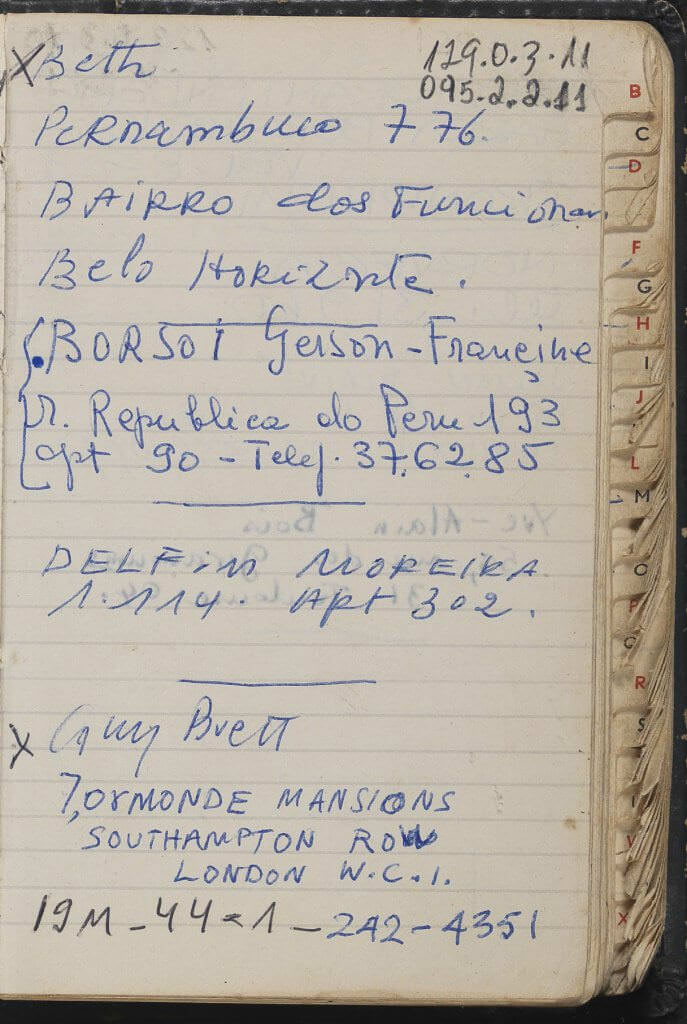 X Beth
129.0.3.11
095.2.2.11
Pernambuco 776.
BAiRRO dos Funcionar.
Belo Horizonte.
BORSOI Gerson-Francine
r. Republica do Peru 193
apt 90 - Telef. 37.62.85
DELFim MOREIRA
1.114. Apt 302.
X Guy Brett
7, ORMONDE MANSIONS
SOUTHAMPTON ROW
LONDON W.C.1.
19M-44=1-242-4351
B
C
D
F
G
H
I
J
L
M
O
P
Q
R
S
V
X